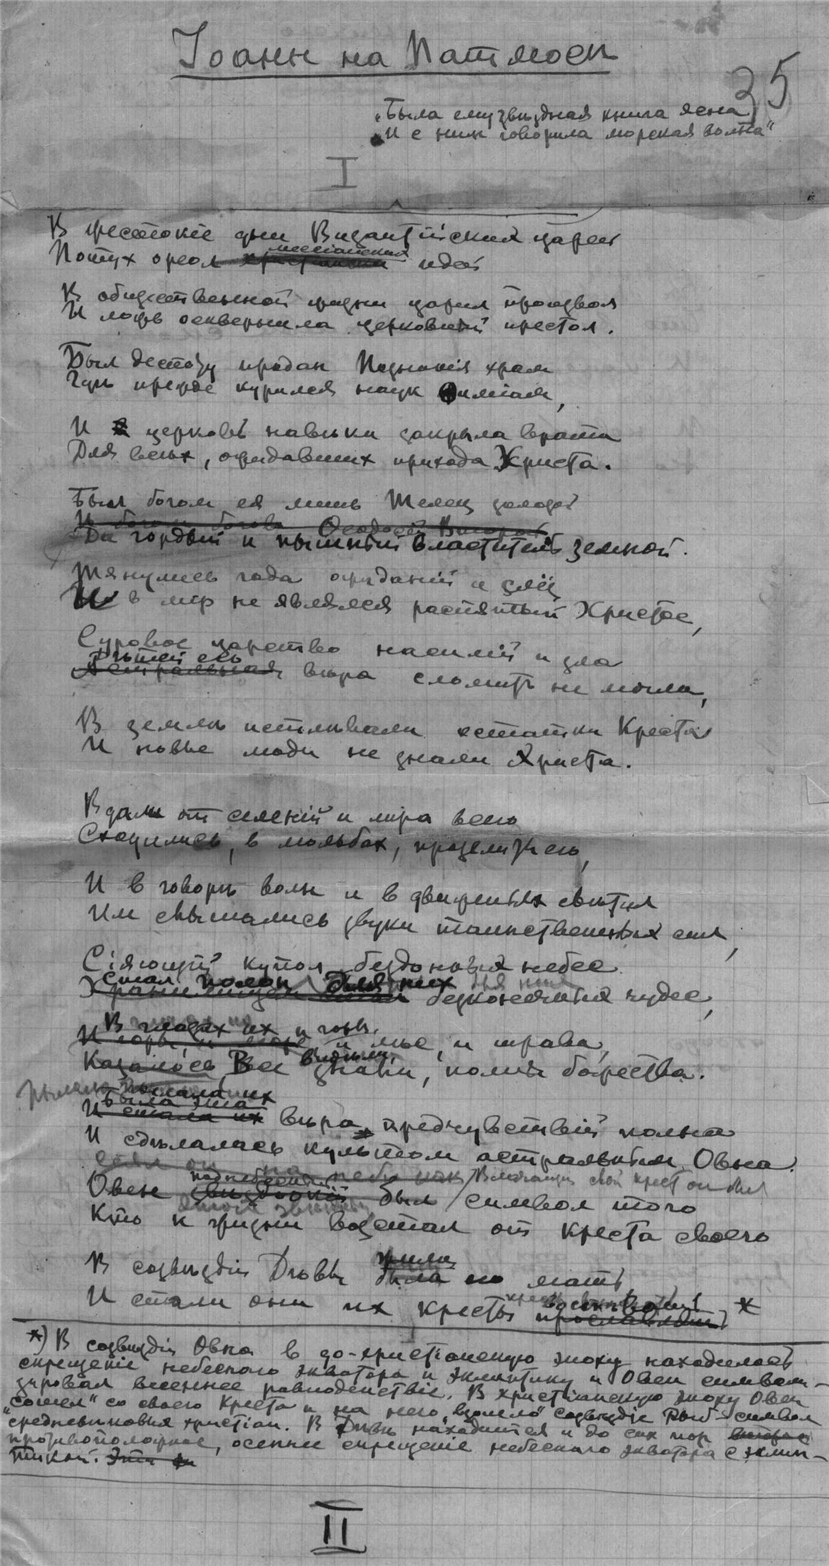 Іоаннъ на Патмосѣ
35
„Была ему звѣздная книга ясна
„И с ним говорила морская волна“
I
В жестокіе дни Византійских царей
Потух ореол мессіанских идей
В общественной жизни царил произвол
И ложь осквернила церковный престол.
Был деспоту продан Познанія храм
Гдѣ прежде курился наук фиміам,
И церковь навѣки закрыла врата
Для всѣх, ожидавших прихода Христа.
Был богом ея лишь Телец золотой
И богом богов Феодосій Второй
Да гордый и пышный властитель земной.
Тянулись года ожиданій и слёз
И в мір не являлся распятый Христос,
Суровое царство насилій и зла
Астральная вѣра сломить не могла,
В землѣ истлѣвали остатки Креста
И новые люди не знали Христа.
Вдали от селеній и міра всего
Сходились, в мольбах, прозелиты его,
И в говорѣ волн и в движеньях свѣтил
Им слышались звуки таинственных сил,
Сіяющій купол бездонных небес
Стал полон для них
безконечных чудес,
В глазах их и горы,
и лѣс, и трава,
Казалось Все знаки, полны божества.
И стала их вѣра предчувствій полна
И сдѣлалась культом астральным Овна.
Влачащій свой крест он был
Овен был символ того
Кто к жизни возстал от креста своего
В созвѣздіи Дѣвы была его мать
И стали они их кресты прославлять *
*) В созвѣздіи Овна в до-христіанскую эпоху находилось
скрещеніе небеснаго экватора и эклиптики и Овен символи-
зировал весеннее равноденствіе. В христіанскую эпоху Овен
„сошел“ со своего Креста и на него „взошло“ созвѣздіе Рыб-символ
средневѣковых христіан. В Дѣвѣ находится и до сих пор
противоположное, осеннее скрещеніе небеснаго экватора с эклип-
тикой.
II